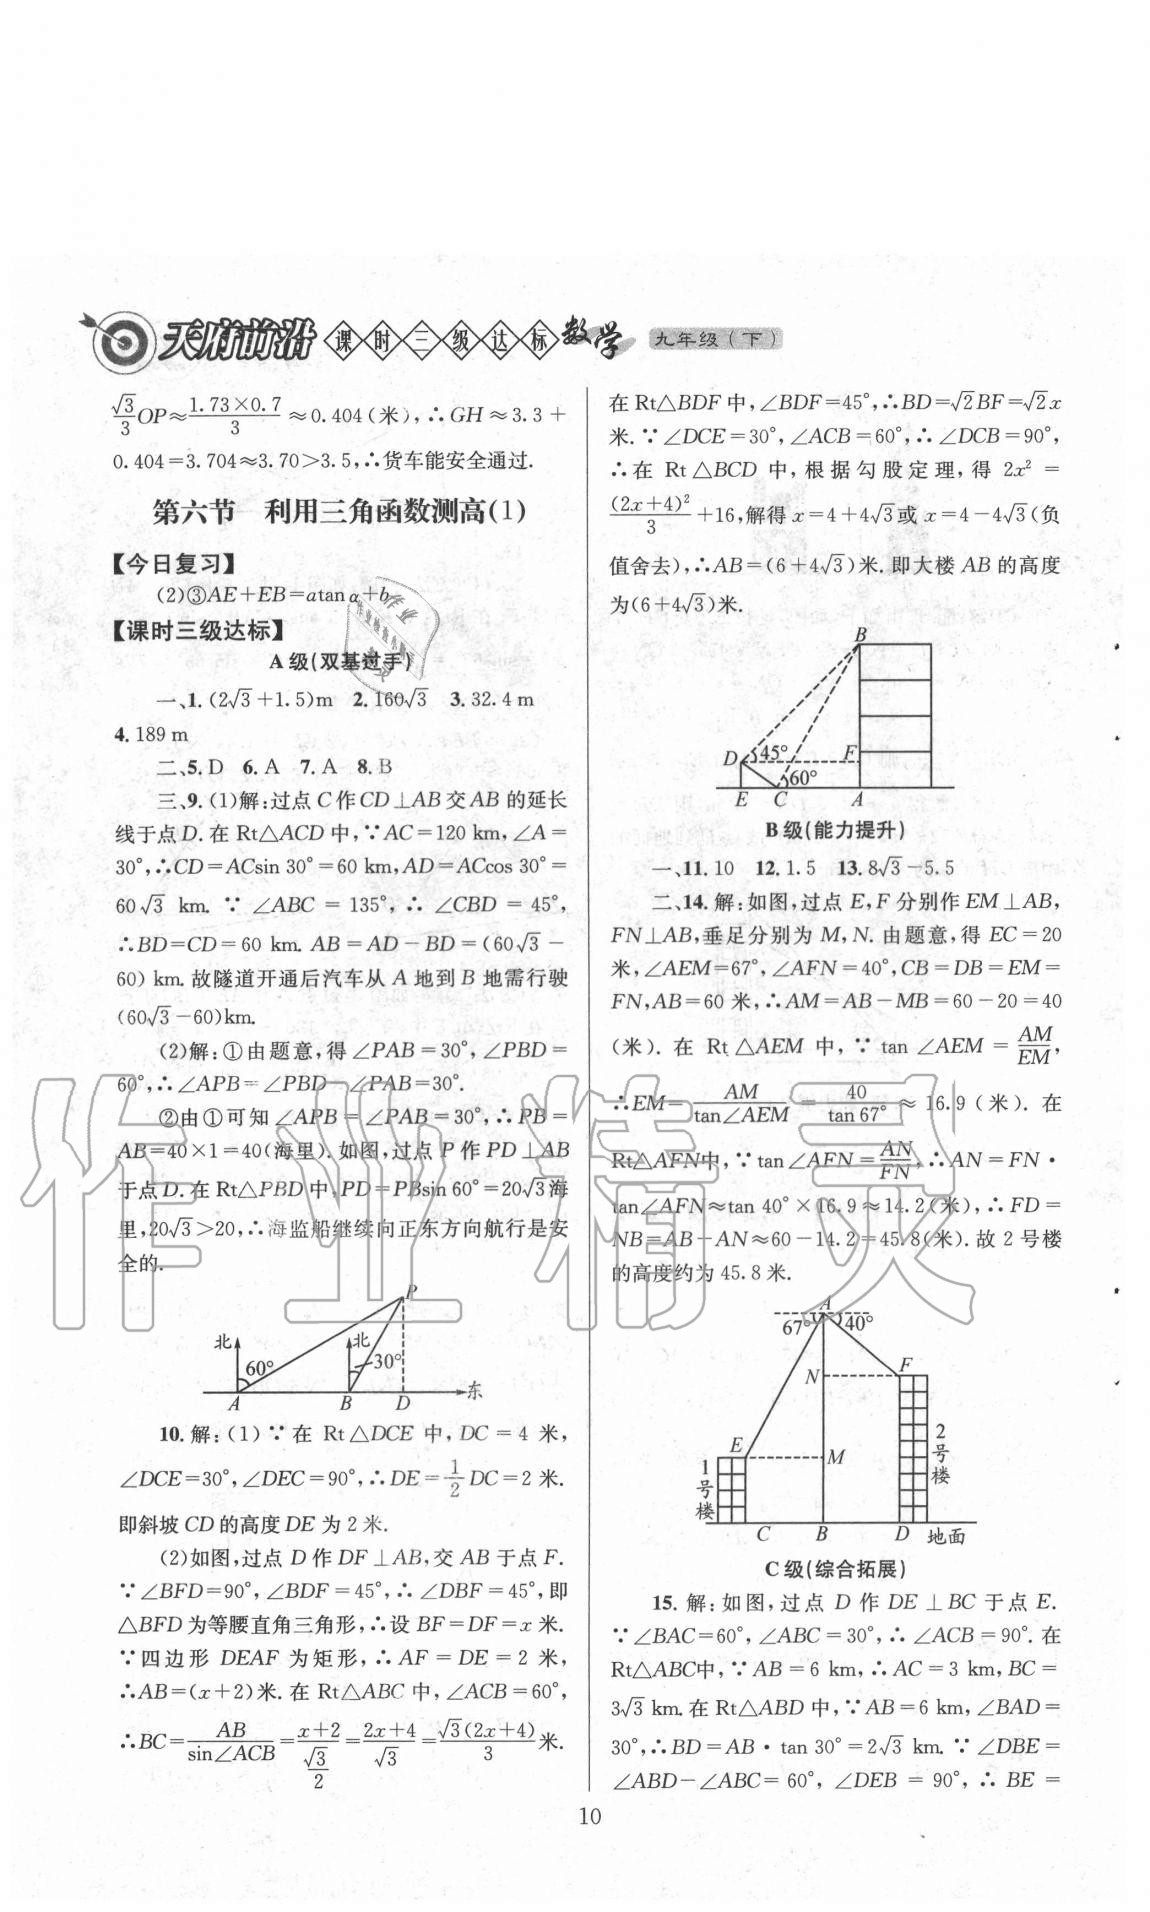 天府前沿 课时三级达标 数学 九年级(下)
√3/3 OP≈(1.73×0.7)/3≈0.404(米),∴GH≈3.3+
0.404=3.704≈3.70>3.5,∴货车能安全通过.
第六节 利用三角函数测高(1)
【今日复习】
(2)③AE+EB=atan α+b
【课时三级达标】
A 级(双基过手)
一、1.(2√3+1.5)m 2.160√3 3.32.4 m
4.189 m
二、5.D 6.A 7.A 8.B
三、9.(1)解:过点 C 作 CD⊥AB 交 AB 的延长
线于点 D.在 Rt△ACD 中,∵AC=120 km,∠A=
30°,∴CD=ACsin 30°=60 km,AD=ACcos 30°=
60√3 km. ∵ ∠ABC = 135°, ∴ ∠CBD = 45°,
∴BD=CD=60 km. AB=AD-BD=(60√3-
60) km.故隧道开通后汽车从 A 地到 B 地需行驶
(60√3-60)km.
(2)解:①由题意,得∠PAB=30°,∠PBD=
60°,∴∠APB=∠PBD-∠PAB=30°.
②由①可知∠APB=∠PAB=30°,∴PB=
AB=40×1=40(海里).如图,过点 P 作 PD⊥AB
于点 D.在 Rt△PBD 中,PD=PBsin 60°=20√3海
里,20√3>20,∴海监船继续向正东方向航行是安
全的.
P
北 北
60° 30°
A B D 东
10.解:(1)∵在 Rt△DCE 中,DC=4 米,
∠DCE=30°,∠DEC=90°,∴DE=1/2 DC=2 米.
即斜坡 CD 的高度 DE 为 2 米.
(2)如图,过点 D 作 DF⊥AB,交 AB 于点 F.
∵∠BFD=90°,∠BDF=45°,∴∠DBF=45°,即
△BFD 为等腰直角三角形,∴设 BF=DF=x 米.
∵四边形 DEAF 为矩形,∴AF=DE=2 米,
∴AB=(x+2)米.在 Rt△ABC 中,∠ACB=60°,
∴BC=AB/sin∠ACB=(x+2)/(√3/2)=(2x+4)/√3=√3(2x+4)/3 米.
在 Rt△BDF 中,∠BDF=45°,∴BD=√2BF=√2x
米.∵∠DCE=30°,∠ACB=60°,∴∠DCB=90°,
∴在 Rt△BCD 中,根据勾股定理,得 2x²=
(2x+4)²/3+16,解得 x=4+4√3或 x=4-4√3(负
值舍去),∴AB=(6+4√3)米.即大楼 AB 的高度
为(6+4√3)米.
B
D 45° F
60°
E C A
B 级(能力提升)
一、11.10 12.1.5 13.8√3-5.5
二、14.解:如图,过点 E,F 分别作 EM⊥AB,
FN⊥AB,垂足分别为 M,N.由题意,得 EC=20
米,∠AEM=67°,∠AFN=40°,CB=DB=EM=
FN,AB=60 米,∴AM=AB-MB=60-20=40
(米). 在 Rt△AEM 中,∵tan ∠AEM=AM/EM,
∴EM=AM/tan∠AEM=40/tan 67°≈16.9(米).在
Rt△AFN中,∵tan∠AFN=AN/FN,∴AN=FN·
tan∠AFN≈tan 40°×16.9≈14.2(米),∴FD=
NB=AB-AN≈60-14.2=45.8(米).故 2 号楼
的高度约为 45.8 米.
A
67° 40°
N F
E M
1号楼 2号楼
C B D 地面
C 级(综合拓展)
15.解:如图,过点 D 作 DE⊥BC 于点 E.
∵∠BAC=60°,∠ABC=30°,∴∠ACB=90°.在
Rt△ABC中,∵AB=6 km,∴AC=3 km,BC=
3√3 km.在 Rt△ABD 中,∵AB=6 km,∠BAD=
30°,∴BD=AB·tan 30°=2√3 km.∵∠DBE=
∠ABD-∠ABC=60°,∠DEB=90°,∴BE=
10
作业精灵